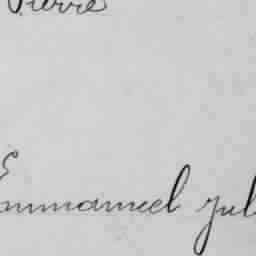 Pierre
Emmanuel Jul